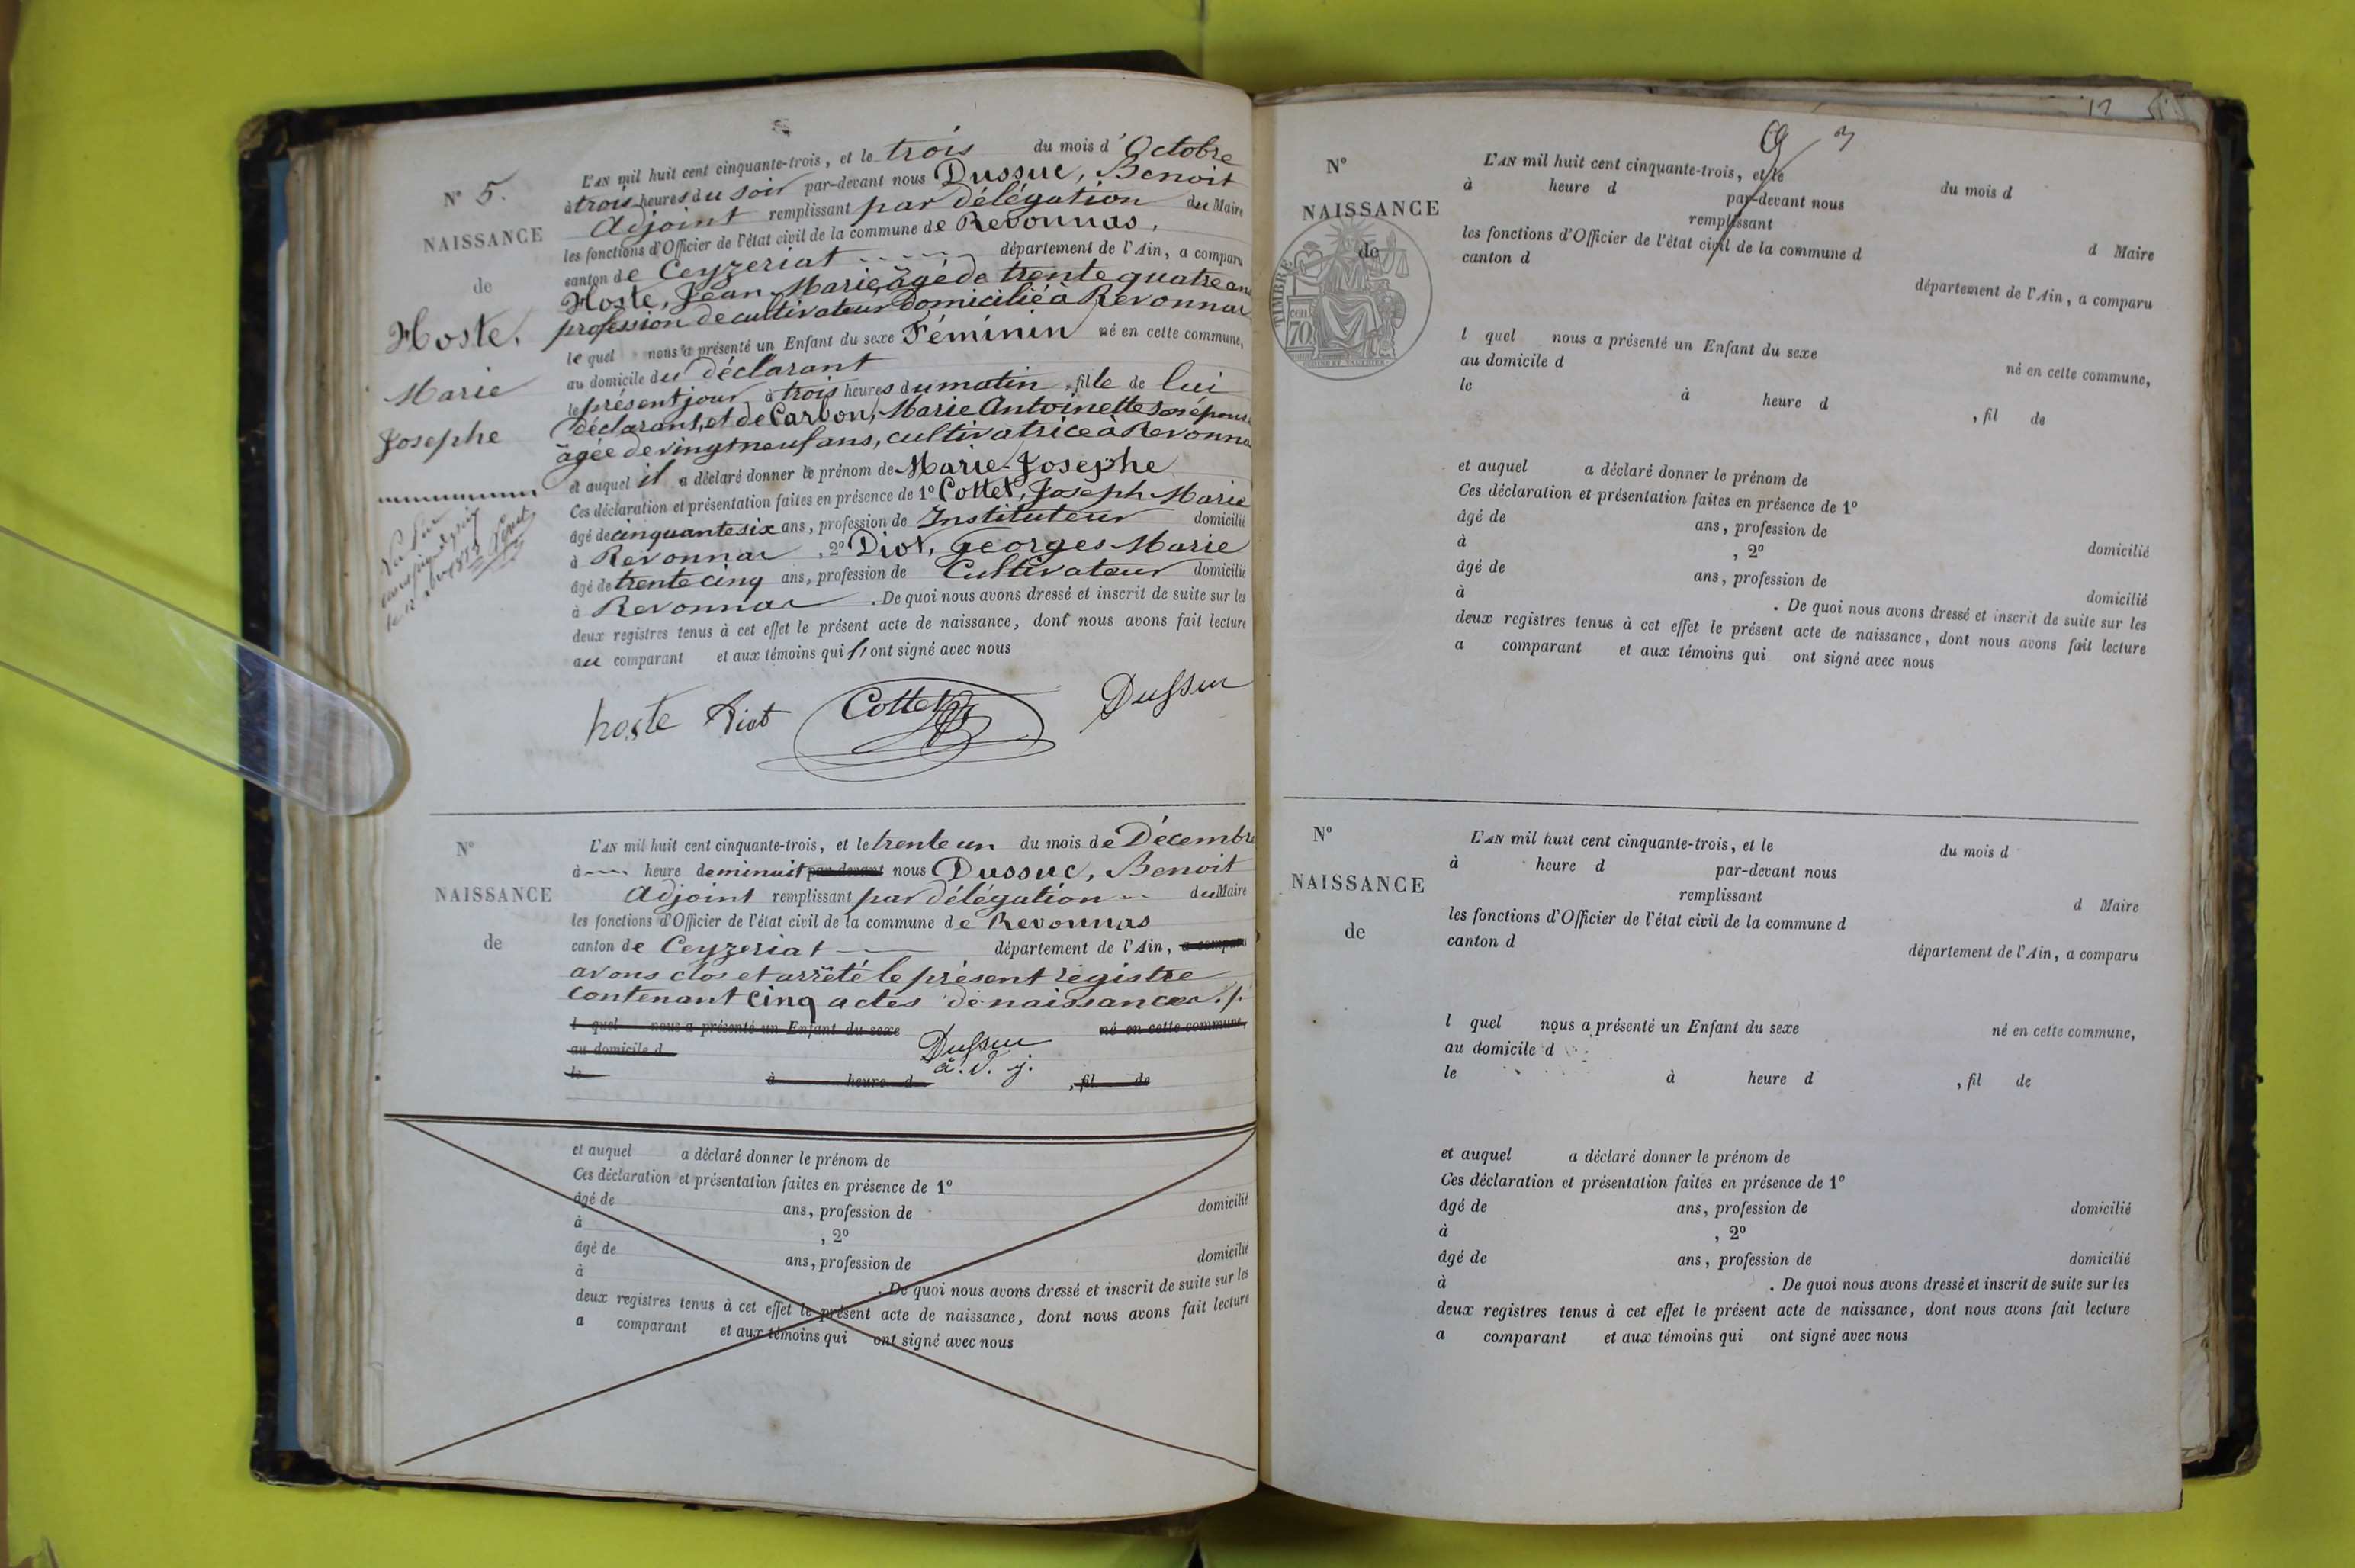 N° 5.
NAISSANCE
de
Hoste,
Marie
Josephe
L'AN mil huit cent cinquante-trois, et le trois du mois d'Octobre
à trois heures du soir par-devant nous Dussuc, Benoit
Adjoint remplissant par délégation du Maire
les fonctions d'Officier de l'état civil de la commune de Revonnas,
canton de Ceyzeriat département de l'Ain, a comparu
Hoste, Jean-Marie, âgé de trente quatre ans
profession de cultivateur domicilié à Revonnas
lequel nous a présenté un Enfant du sexe Féminin né en cette commune,
au domicile du déclarant
le présent jour à trois heures du matin, fille de lui
déclarant, et de Carbon, Marie Antoinette son épouse
âgée de vingt neuf ans, cultivatrice à Revonnas
et auquel il a déclaré donner le prénom de Marie-Josephe
Ces déclaration et présentation faites en présence de 1° Cottet, Joseph Marie
âgé de cinquante six ans, profession de Instituteur domicilié
à Revonnas, 2° Diot, Georges Marie
âgé de trente cinq ans, profession de Cultivateur domicilié
à Revonnas. De quoi nous avons dressé et inscrit de suite sur les
deux registres tenus à cet effet le présent acte de naissance, dont nous avons fait lecture
au comparant et aux témoins qui ont signé avec nous
hoste Diot Cottet Dussuc
N°
NAISSANCE
de
L'AN mil huit cent cinquante-trois, et le trente un du mois de Décembre
à heure de minuit par-devant nous Dussuc, Benoit
Adjoint remplissant par délégation du Maire
les fonctions d'Officier de l'état civil de la commune de Revonnas
canton de Ceyzeriat département de l'Ain, a comparu
avons clos et arrêté le présent régistre
contenant Cinq actes de naissances ./.
l quel nous a présenté un Enfant du sexe né en cette commune,
au domicile d Dussuc
le à heure d a.d.j. , fil de
et auquel a déclaré donner le prénom de
Ces déclaration et présentation faites en présence de 1°
âgé de ans, profession de domicilié
à , 2°
âgé de ans, profession de domicilié
à . De quoi nous avons dressé et inscrit de suite sur les
deux registres tenus à cet effet le présent acte de naissance, dont nous avons fait lecture
a comparant et aux témoins qui ont signé avec nous
12
N°
NAISSANCE
de
TIMBRE
70
L'AN mil huit cent cinquante-trois, et le du mois d
à heure d par-devant nous
remplissant d Maire
les fonctions d'Officier de l'état civil de la commune d
canton d département de l'Ain, a comparu
l quel nous a présenté un Enfant du sexe né en cette commune,
au domicile d
le à heure d , fil de
et auquel a déclaré donner le prénom de
Ces déclaration et présentation faites en présence de 1°
âgé de ans, profession de domicilié
à , 2°
âgé de ans, profession de domicilié
à . De quoi nous avons dressé et inscrit de suite sur les
deux registres tenus à cet effet le présent acte de naissance, dont nous avons fait lecture
a comparant et aux témoins qui ont signé avec nous
N°
NAISSANCE
de
L'AN mil huit cent cinquante-trois, et le du mois d
à heure d par-devant nous
remplissant d Maire
les fonctions d'Officier de l'état civil de la commune d
canton d département de l'Ain, a comparu
l quel nous a présenté un Enfant du sexe né en cette commune,
au domicile d
le à heure d , fil de
et auquel a déclaré donner le prénom de
Ces déclaration et présentation faites en présence de 1°
âgé de ans, profession de domicilié
à , 2°
âgé de ans, profession de domicilié
à . De quoi nous avons dressé et inscrit de suite sur les
deux registres tenus à cet effet le présent acte de naissance, dont nous avons fait lecture
a comparant et aux témoins qui ont signé avec nous